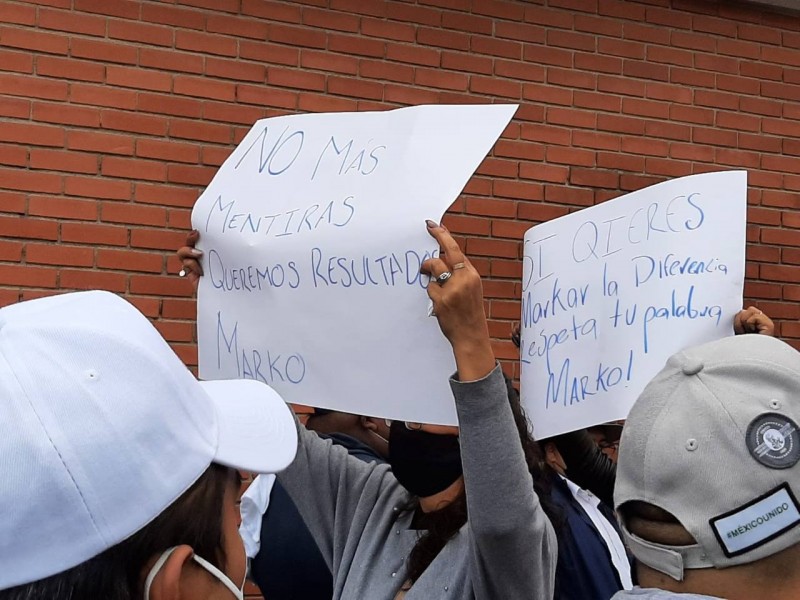 NO MÁS
MENTIRAS
QUEREMOS RESULTADOS
MARKO
SI QUIERES
Markar la Diferencia
Respeta tu palabra
MARKO!
#MÉXICOUNIDO